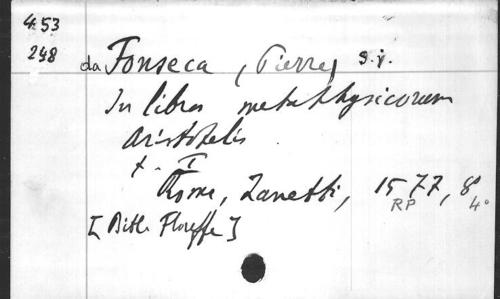 4.53
248
da Fonseca, (Pierre) s.j.
In libros metaphysicorum
aristotelis
t. I
Rome, Zanetti, 1577, 8°
RP 4°
[Bibl. Floreffe]